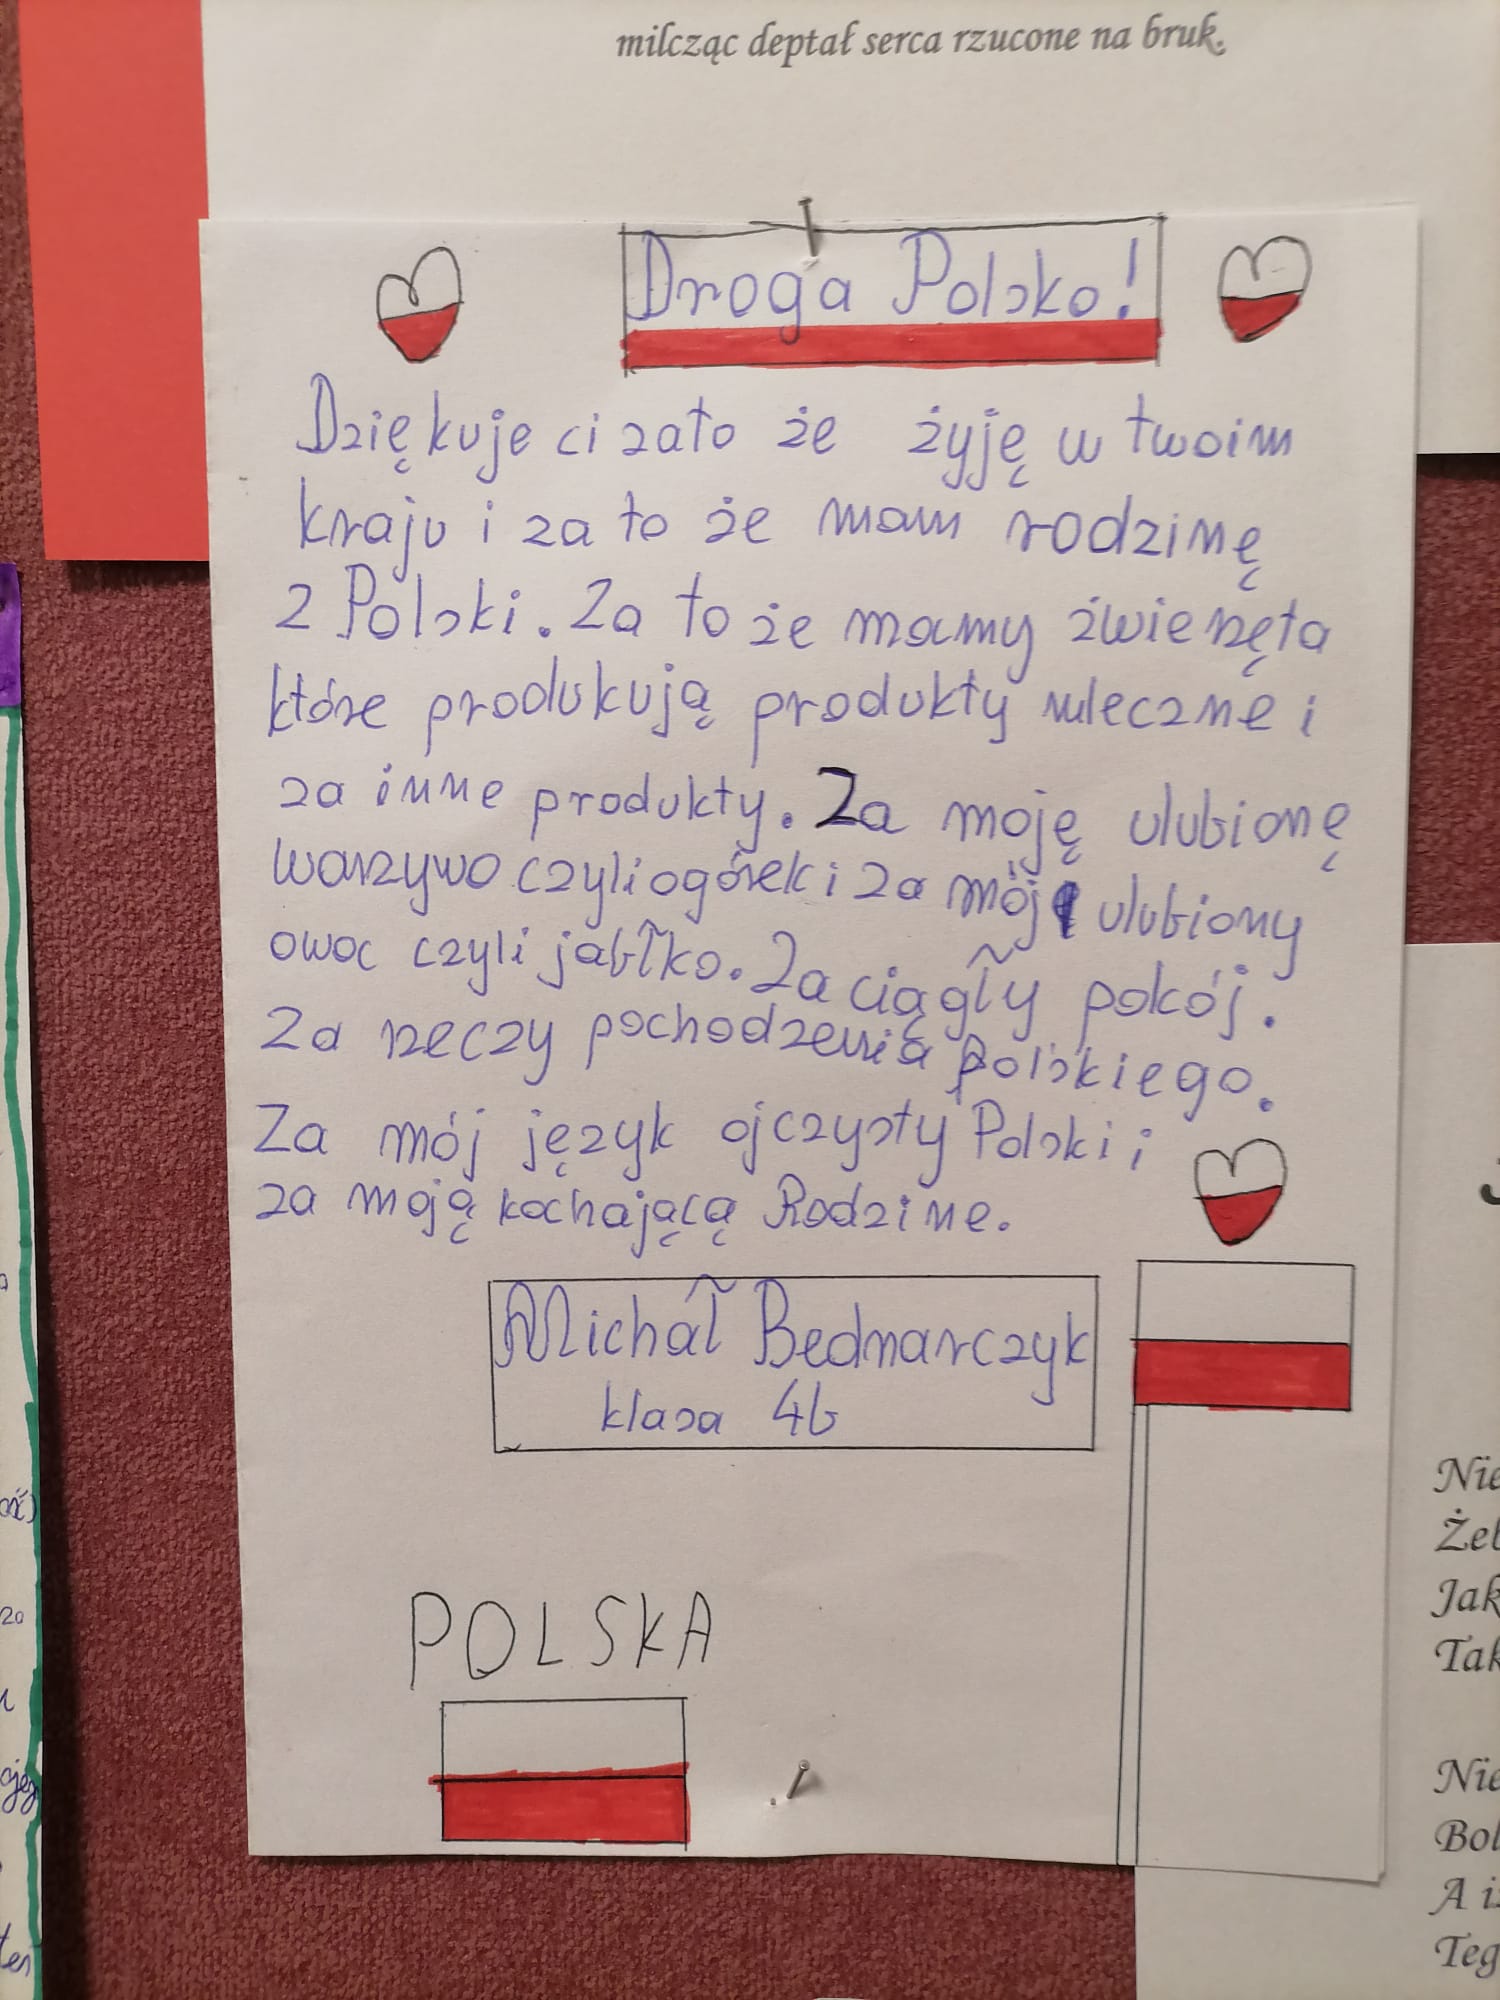 milcząc deptał serca rzucone na bruk.
Droga Polsko!
Dziękuje ci zato że żyję w twoim
kraju i za to że mam rodzinę
z Polski. Za to że mamy źwierzęta
które produkują produkty mleczne i
za inne produkty. Za moję ulubionę
warzywo czyli ogórek i za mój ulubiony
owoc czyli jabłko. Za ciągły pokój.
Za rzeczy pochodzenia polskiego.
Za mój język ojczysty Polski i
za moją kochającą Rodzine.
Michał Bednarczyk
klasa 4b
POLSKA
Nie
Jak
Tak
Nie
A